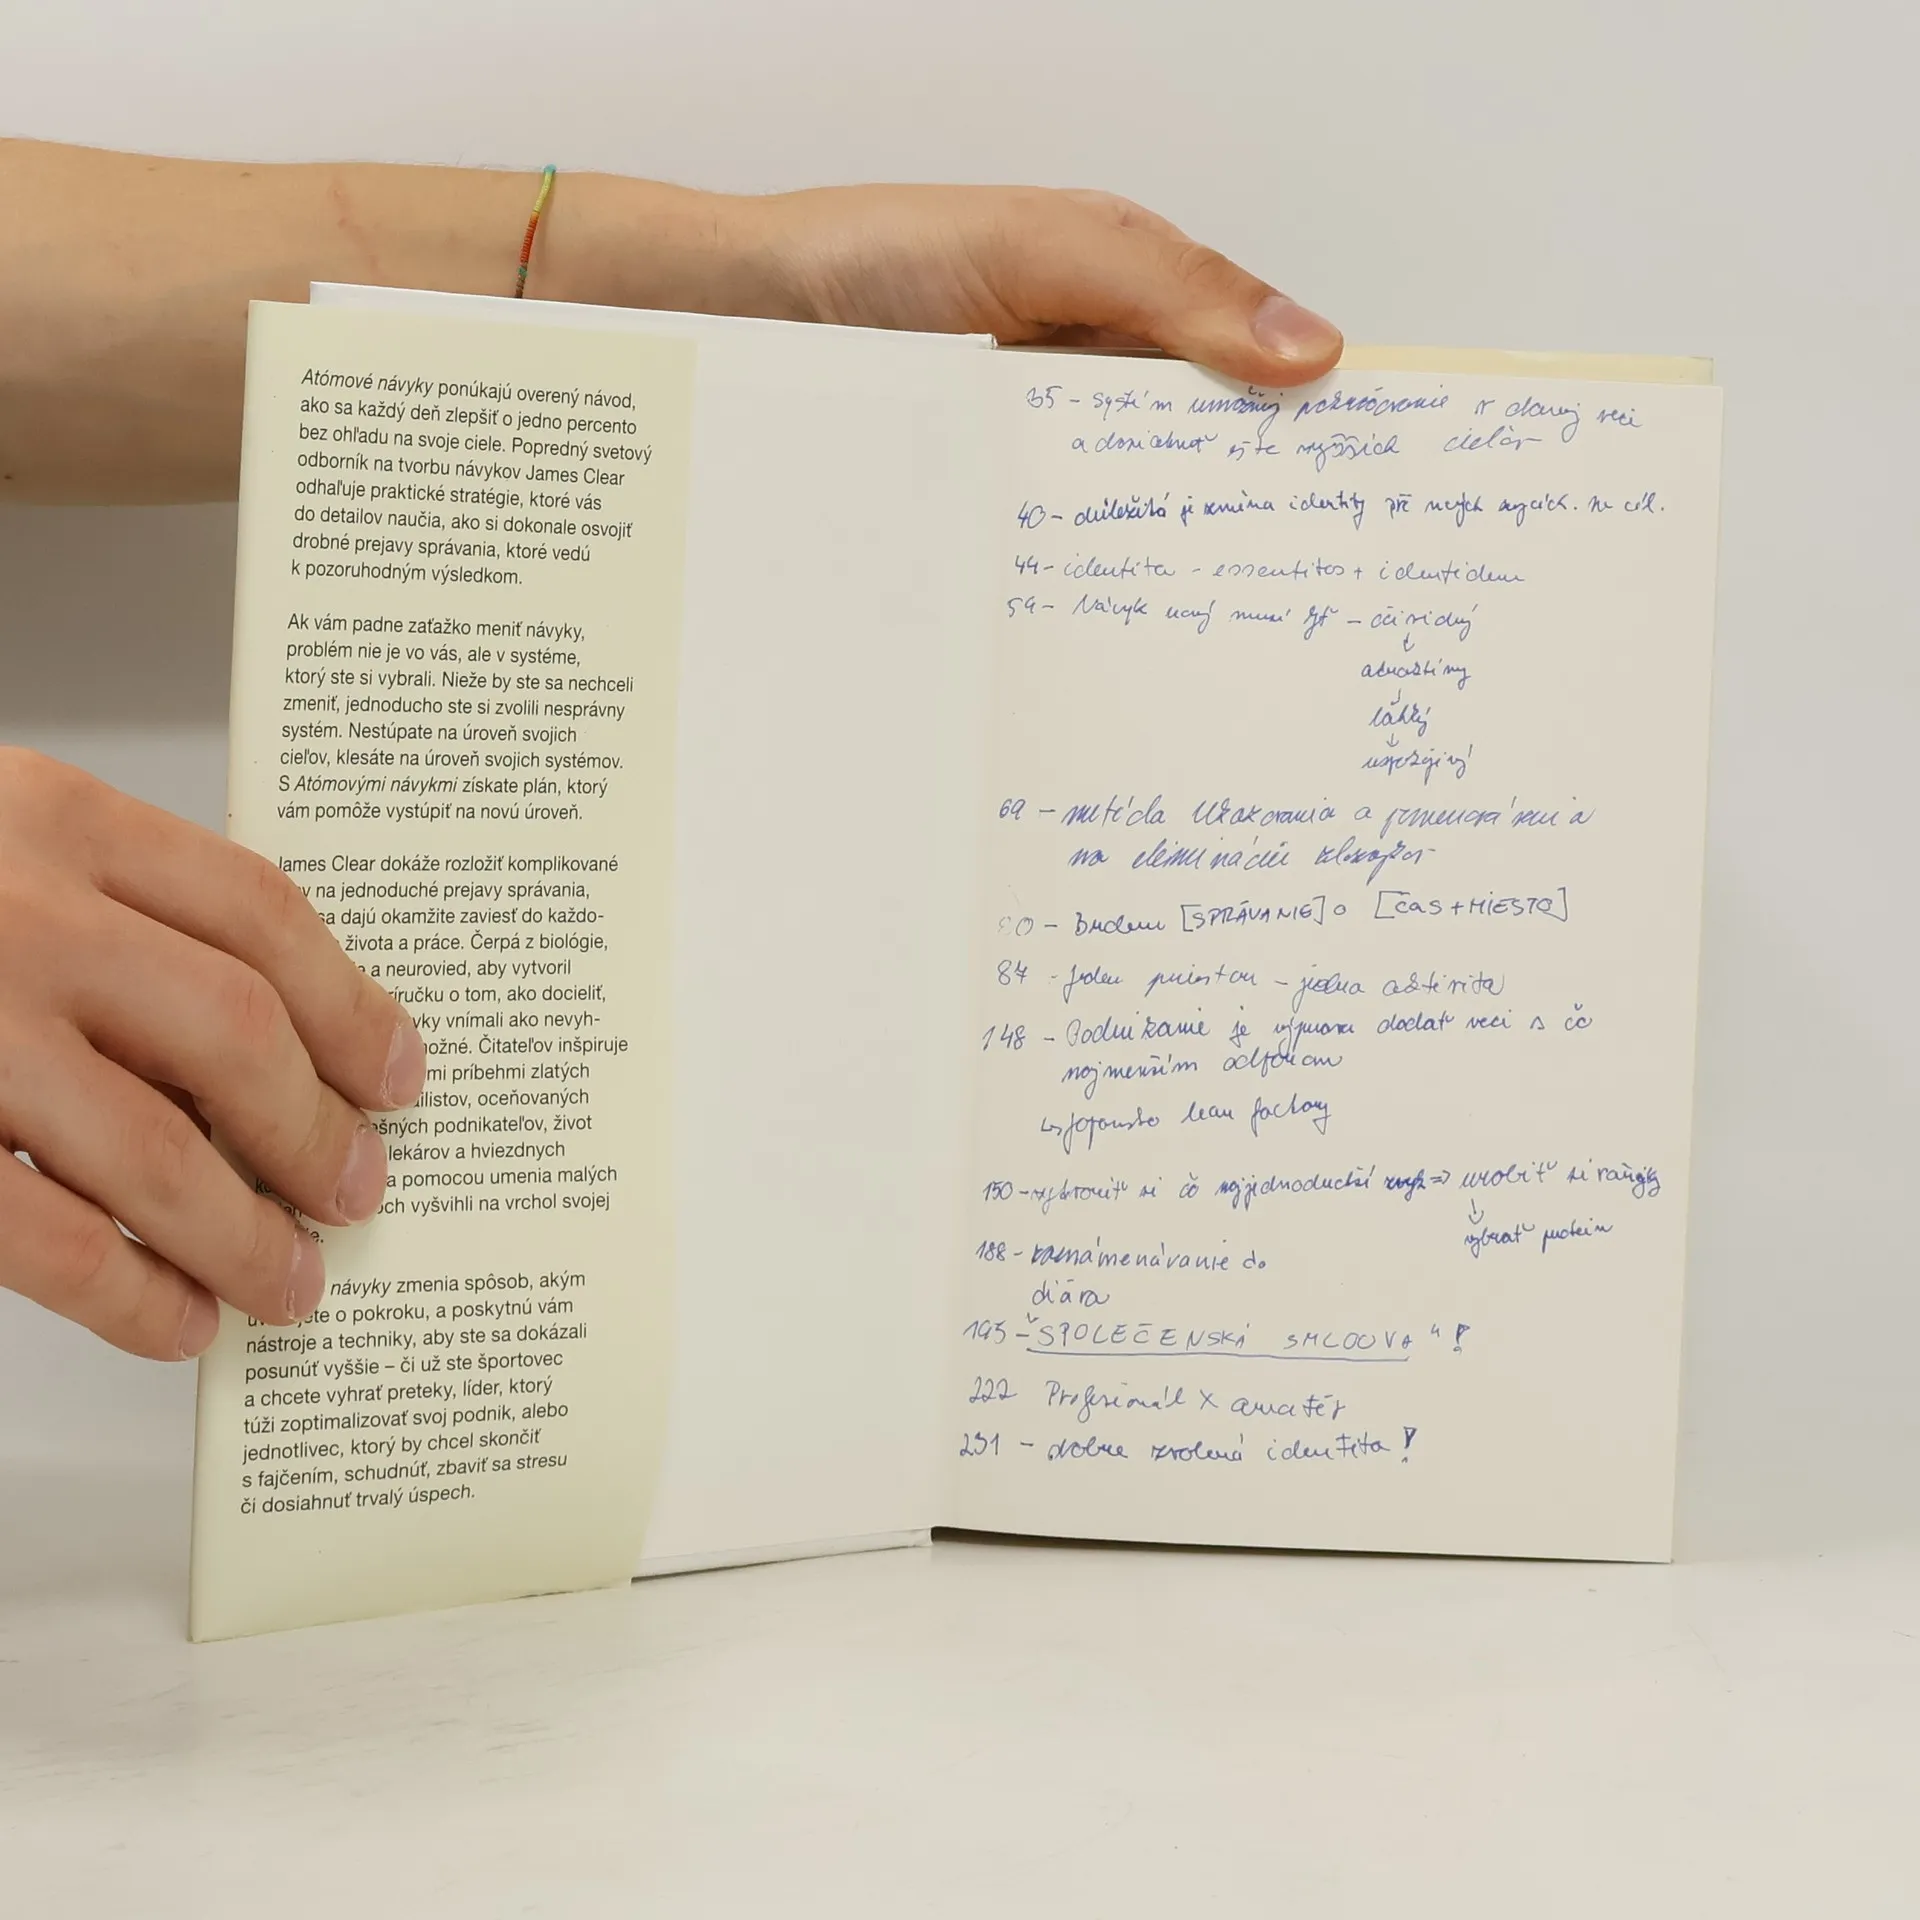 Atómové návyky ponúkajú overený návod,
ako sa každý deň zlepšiť o jedno percento
bez ohľadu na svoje ciele. Popredný svetový
odborník na tvorbu návykov James Clear
odhaľuje praktické stratégie, ktoré vás
do detailov naučia, ako si dokonale osvojiť
drobné prejavy správania, ktoré vedú
k pozoruhodným výsledkom.
Ak vám padne zaťažko meniť návyky,
problém nie je vo vás, ale v systéme,
ktorý ste si vybrali. Nieže by ste sa nechceli
zmeniť, jednoducho ste si zvolili nesprávny
systém. Nestúpate na úroveň svojich
cieľov, klesáte na úroveň svojich systémov.
S Atómovými návykmi získate plán, ktorý
vám pomôže vystúpiť na novú úroveň.
James Clear dokáže rozložiť komplikované
na jednoduché prejavy správania,
sa dajú okamžite zaviesť do každo-
života a práce. Čerpá z biológie,
a neurovied, aby vytvoril
o tom, ako docieliť,
vnímali ako nevyh-
Čitateľov inšpiruje
príbehmi zlatých
oceňovaných
podnikateľov, život
lekárov a hviezdnych
a pomocou umenia malých
vyšvihli na vrchol svojej
návyky zmenia spôsob, akým
o pokroku, a poskytnú vám
nástroje a techniky, aby ste sa dokázali
posunúť vyššie – či už ste športovec
a chcete vyhrať preteky, líder, ktorý
túži zoptimalizovať svoj podnik, alebo
jednotlivec, ktorý by chcel skončiť
s fajčením, schudnúť, zbaviť sa stresu
či dosiahnuť trvalý úspech.
35 - systém pokračovanie v danej veci
a dosiahnuť ešte vyšších cieľov
40 - důležitá je změna identity při nových
44 - identita - essentitas + identidem
54 - Návyk nový musí byť -
↓
↓
ľahký
↓
69 - metóda ukazovania a pomenovávania
na elimináciu zlozvykov
- Budem [SPRÁVANIE] o [ČAS + MIESTO]
87 - Jeden priestor - jedna aktivita
148 - Podnikanie je dodať veci s čo
najmenším odporom
↳ Japonsko lean factory
150 - vytvoriť si čo najjednoduchší zvyk => urobiť si raňajky
↓
vybrať protein
188 - zaznámenávanie do
diára
195 - "SPOLEČENSKÁ SMLOUVA"!
222 Profesionál X amatér
231 - dobre zvolená identita!